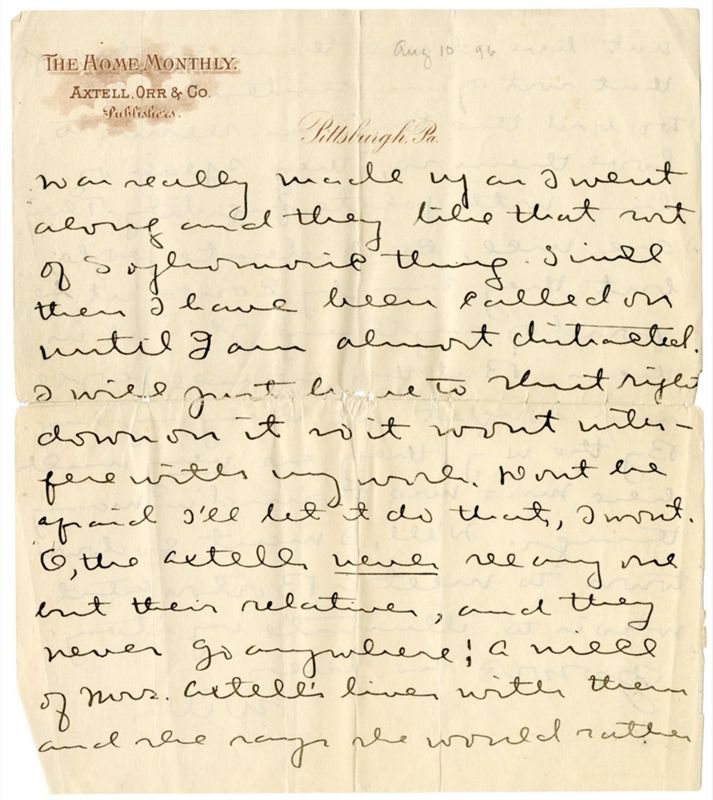 Aug 10 96
THE HOME MONTHLY.
AXTELL, ORR & CO.
Publishers.
Pittsburgh, Pa.
was really made up as I went
along and they like that sort
of Sophomoric thing. Since
then I have been called on
until I am almost distracted.
I will just have to shut right
down on it so it wont inter-
fere with my work. Dont be
afraid I'll let it do that, I wont.
O, the Axtells never see any one
but their relatives, and they
never go anywhere; a niece
of Mrs. Axtell's lives with them
and she says she would rather